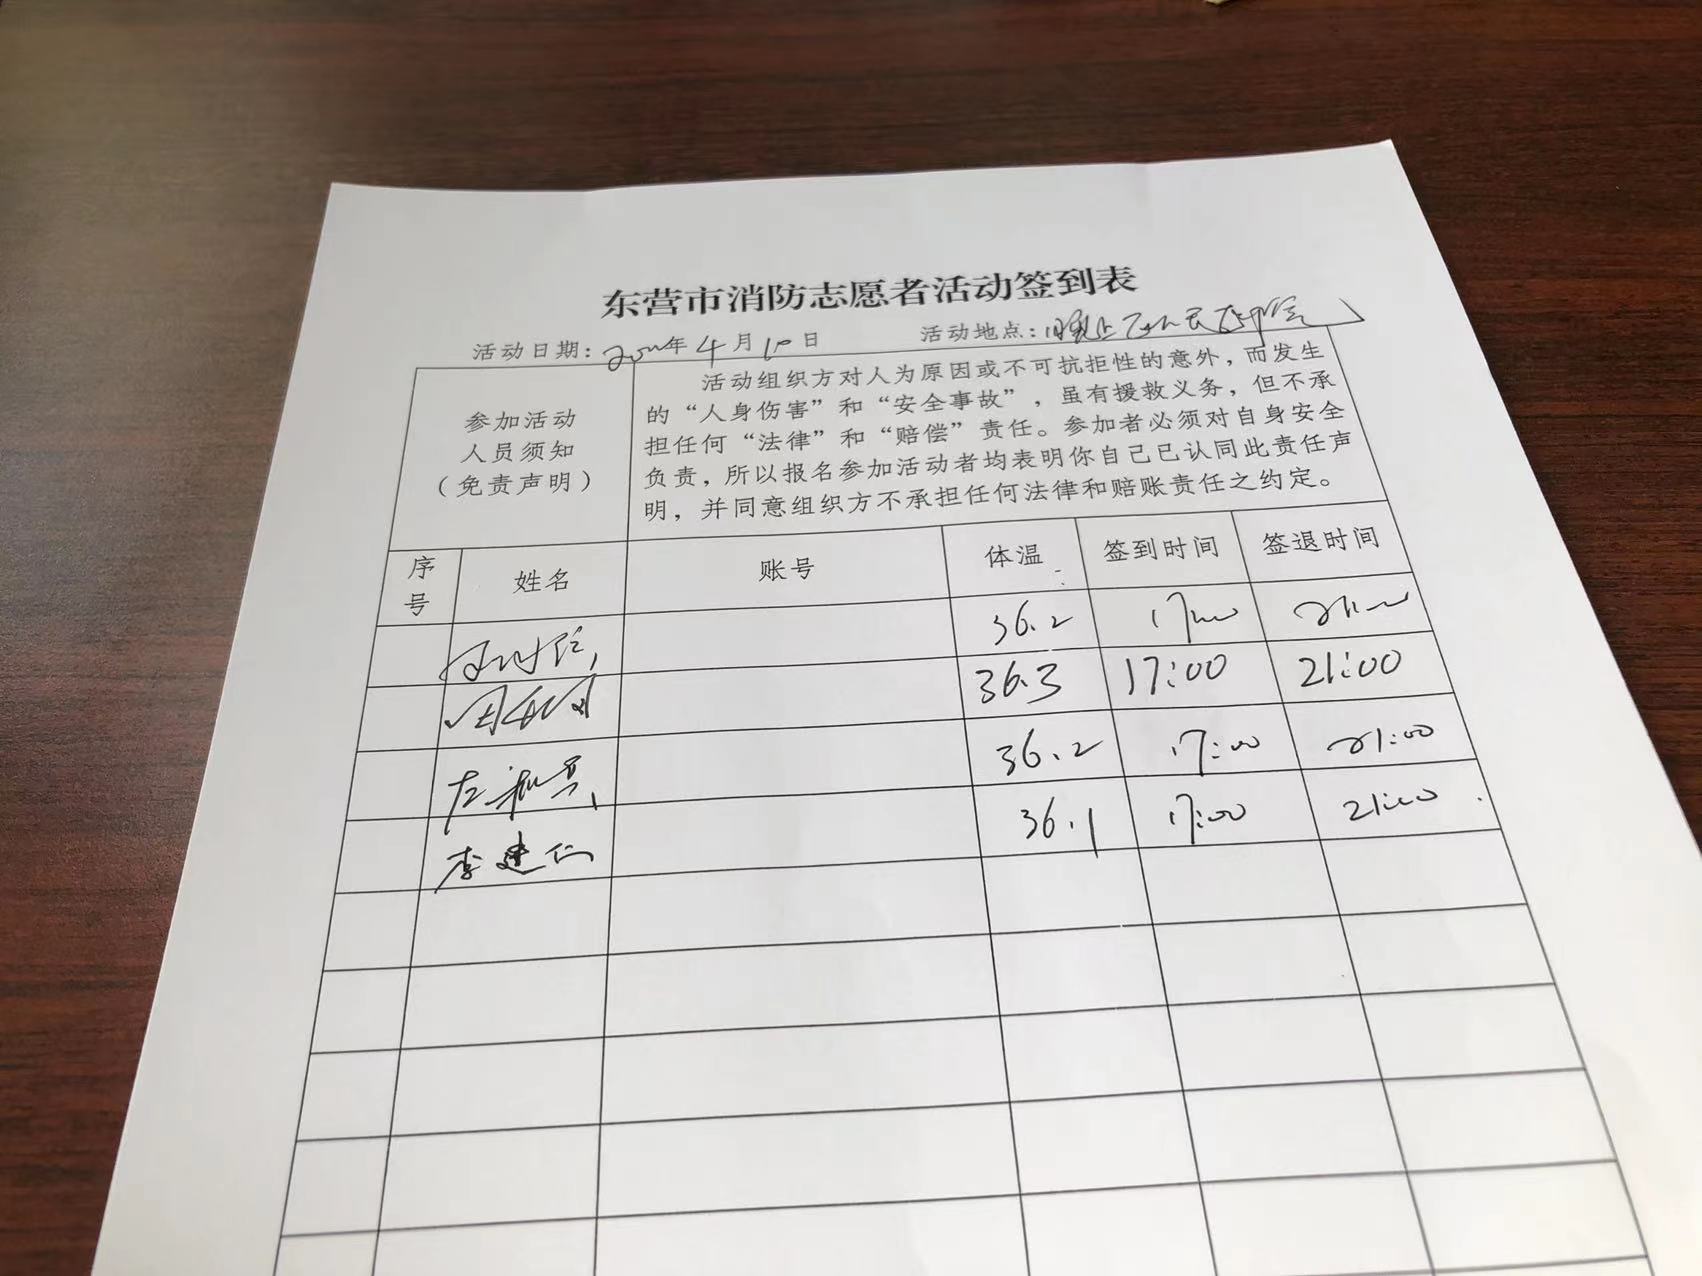 东营市消防志愿者活动签到表
活动日期：年4月10日 活动地点：
参加活动
人员须知
（免责声明）
活动组织方对人为原因或不可抗拒性的意外，而发生
的“人身伤害”和“安全事故”，虽有援救义务，但不承
担任何“法律”和“赔偿”责任。参加者必须对自身安全
负责，所以报名参加活动者均表明你自己已认同此责任声
明，并同意组织方不承担任何法律和赔账责任之约定。
序号 姓名 账号 体温 签到时间 签退时间
36.2 17:00 21:00
36.3 17:00 21:00
36.2 17:00 21:00
李建仁 36.1 17:00 21:00